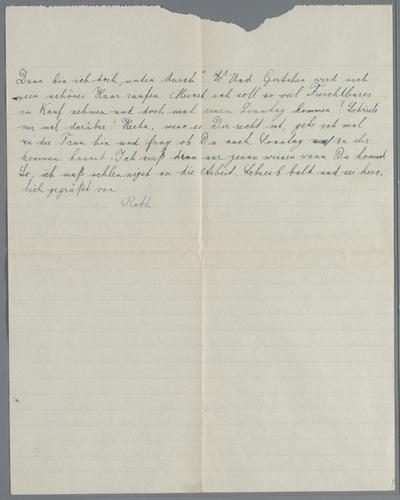 Dann bin ich doch „unten durch". Und Gretchen wird sich
ein schönes Haar raufen. Meinst ich soll so viel Furchtbares
in Kauf nehmen und doch mal einen Sonntag kommen? Schreibe
mir mal darüber! Herta, wenn es Dir recht ist, gehe ich mal
zu der Frau hin und frag ob Du auch Sonntag zu ihr
kommen kannst. Ich muß dann nur genau wissen wann Du kommst.
So, ich muß schleunigst an die Arbeit. Schreib bald und sei herz-
lich gegrüßt von